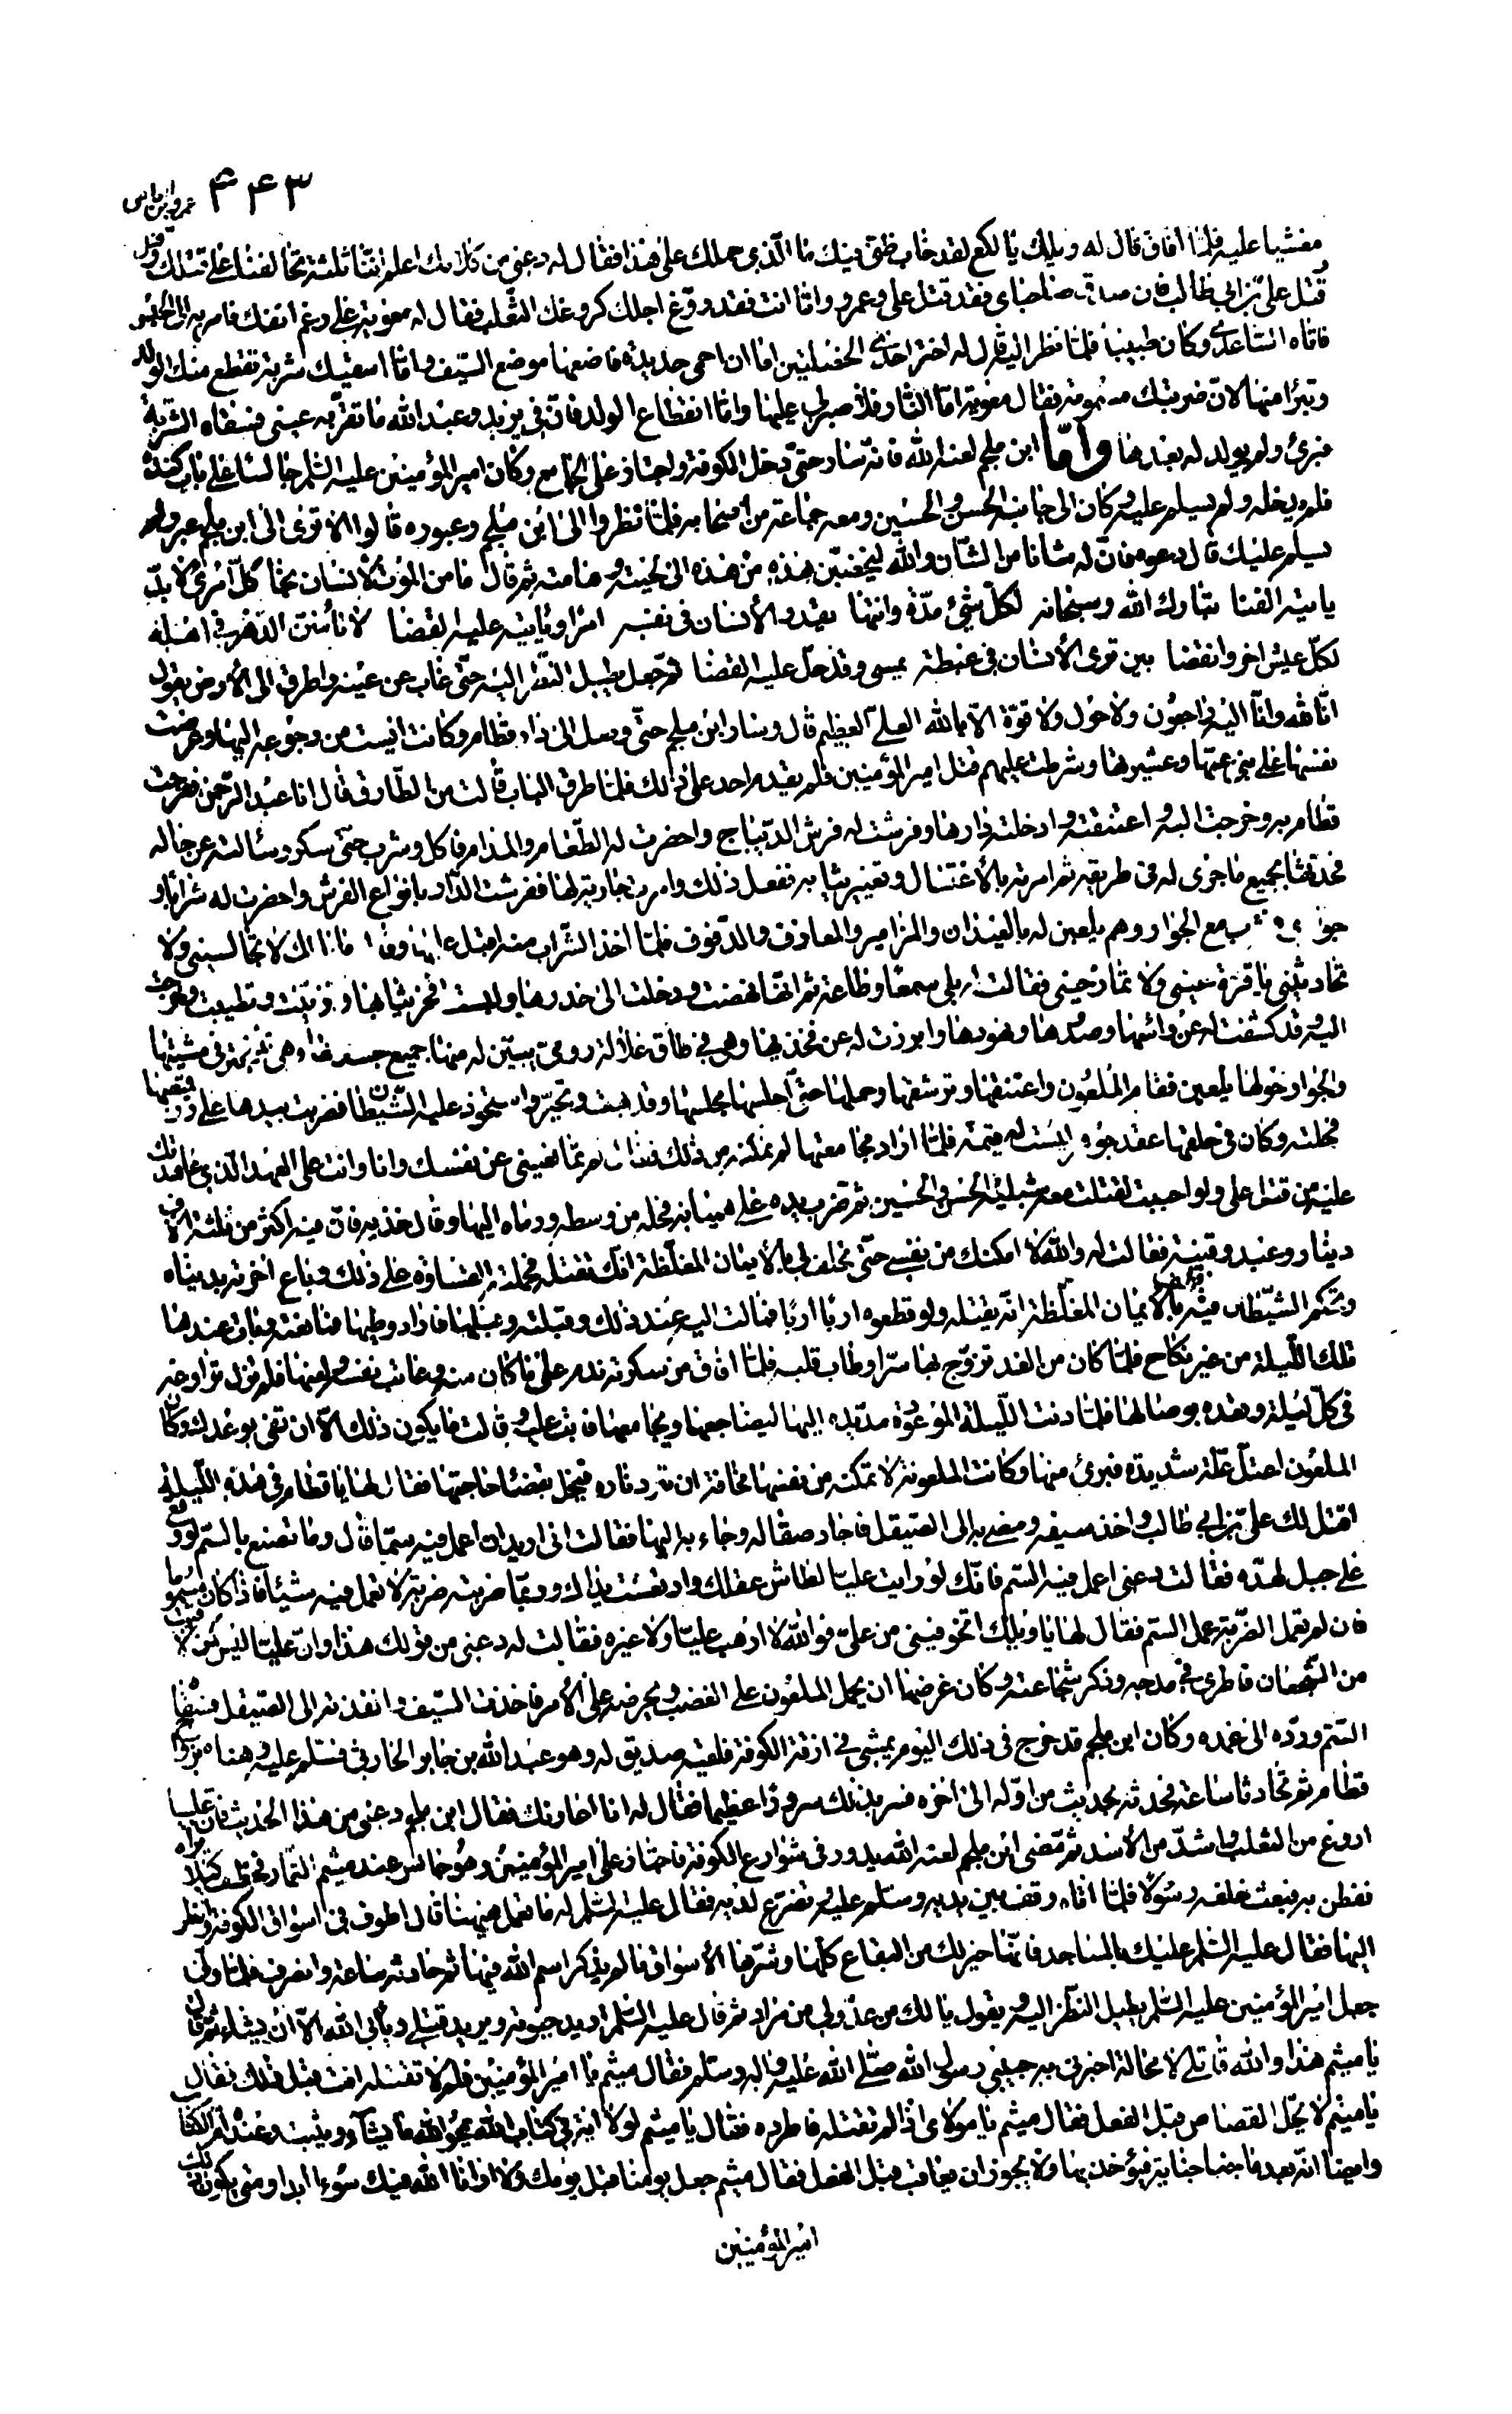 ۴۴۳
مغشيا عليه فلمّا افاق قال له ويلك يا لكع لقد خاب ظنى فيك ما الّذي حملك على هذا فقال له دعنى من كلامك اعلم اننا ثلثة تحالفنا على قتلك وقتل
قتل علىّ بن ابى طالب فان صدق صاحباى فقد قتل على وعمرو واما انت فقد روّغ اجلك كروغك الثعلب فقال له معوية على رغم انفك فامر به الى الحبس
فاتاه الساعدى وكان طبيبا فلمّا نظر اليه قال له اختر احدى الخصلتين اما ان احمى حديدة فاضعها موضع السّيف واما اسقيك شربة تقطع منك الولد
وتبرأ منها لانّ ضربتك مسمومة فقال معوية امّا النّار فلا صبر لى عليها وامّا انقطاع الولد فانّ فى يزيد وعبد الله ما تقرّ به عينى فسقاه الشّربة
فبرئ ولم يولد له بعدها وأمّا ابن ملجم لعنه الله فانه سار حتّى دخل الكوفة واجتاز على الجامع وكان امير المؤمنين عليه السّلم جالسا على باب كندة
فلم يدخله ولم يسلم عليه وكان الى جانبه الحسن والحسين ومعه جماعة من اصحابه فلمّا نظروا الى ابن ملجم وعبوره قالوا الا ترى الى ابن ملجم عبر ولم
يسلم عليك قال دعوه فانّ له شانا من الشّان والله ليخضبنّ هذه من هذه الى لحيته وهامته ثم قال ما من الموت لانسان نجا كلّ امرئ لا بدّ
ياتيه الفنا تبارك الله وسبحانه لكلّ شئ مدّة وانتها يقدر الأنسان فى نفسه امرا وياتيه عليه القضا لا تأمننّ الدّهر فى اهله
لكلّ عيش اخر وانقضا بين ترى الأنسان فى غبطة يمسى وقد حلّ عليه القضا ثمّ جعل يطيل النّظر اليه حتّى غاب عن عينه واطرق الى الأرض يقول
انّا لله وانّا اليه راجعون ولا حول ولا قوّة الّا بالله العلىّ العظيم قال وسار ابن ملجم حتّى وصل الى دار قطام وكانت ايست من رجوعه اليها وعرضت
نفسها على بنى عمّها وعشيرتها وشرطت عليهم قتل امير المؤمنين فلم يقدم احد على ذلك فلمّا طرق الباب قالت من الطّارق قال انا عبد الرّحمن ففرحت
قطام به وخرجت اليه واعتنقته وادخلته دارها وفرشت له فرش الدّيباج واحضرت له الطّعام والمدام فاكل وشرب حتّى سكر وسألته عن حاله
فحدّثها بجميع ما جرى له فى طريقه ثم امرته بالأغتسال وتغيير ثيابه ففعل ذلك وامرت جارية لها ففرشت الدّار بانواع الفرش واحضرت له شرابا و
مع الجوار وهم يلعبن له بالعيدان والمزامير والمعازف والدّفوف فلمّا اخذ الشّراب منه اقبل عليها وقال ما بالك لا تجالسينى ولا
تحادثينى يا قرّة عينى ولا تمازحينى فقالت له بلى سمعا وطاعة ثم انّها نهضت ودخلت الى خدرها ولبست افخر ثيابها وتزيّنت وتطيبت وخرجت
اليه وقد كشفت له عن رأسها وصدرها ونهودها وابرزت له عن فخذيها وهى فى طاق غلالة رومى يبيّن له منها جميع جسدها وهى تتبختر فى مشيتها
والجوار حولها يلعبن فقام الملعون واعتنقها وترشفها وحملها حتّى اجلسها مجلسها وقد بهت وتحيّر واستحوذ عليه الشّيطان فضربت بيدها على زرّ قميصها
فحلّته وكان فى حلقها عقد جوهر ليست له قيمة فلمّا اراد مجامعتها لم تمكنه من ذلك فقال لم تمانعينى عن نفسك وانا وانت على العهد الّذى عاهدتك
عليه من قتل على ولو احببت لقتلت معه شبليه الحسن والحسين ثم ضرب يده على هميانه فحلّه من وسطه ورماه اليها وقال خذيه فانّ فيه اكثر من ثلثة الاف
دينار وعبد وقينة فقالت له والله لا امكنك من نفسى حتّى تحلف لى بالأيمان المغلّظة انّك تقتله فحملته القساوة على ذلك وباع اخرته بدنياه
وتحكّم الشّيطان فيه بالأيمان المغلّظة انّه يقتله ولو قطعوه اربا اربا فمالت اليه عند ذلك وقبّلته وقبّلها فاراد وطيها فمانعته وبات عندها
تلك اللّيلة من غير نكاح فلمّا كان من الغد تزوّج بها سرّا وطاب قلبه فلمّا افاق من سكرته ندم على ما كان منه وعاتب نفسه ولعنها فلم تزل تراوغه
فى كلّ ليلة وتعده بوصالها فلمّا دنت اللّيلة الموعودة مدّ يده اليها ليضاجعها ويجامعها فابت عليه وقالت ما يكون ذلك الّا ان تفى بوعدك وكان
الملعون اعتلّ علّة شديدة فبرئ منها وكانت الملعونة لا تمكنه من نفسها مخافة ان تبرد ناره فيخل بقضاء حاجتها فقال لها يا قطام فى هذه اللّيلة
اقتل لك علىّ بن ابى طالب واخذ سيفه ومضى به الى الصّيقل فاجاد صقاله وجاء به اليها فقالت انى اريد ان اعمل فيه سمّا قال وما تصنع بالسّم لو وقع
على جبل لهدّه فقالت دعنى اعمل فيه السّم فانّك لو رايت عليّا لطاش عقلك وارتعشت يداك وربّما ضربته ضربة لا تعمل فيه شيئا فاذا كان مسموما
فان لم تعمل الضّربة عمل السّم فقال لها يا ويلك اتخوفينى من علىّ فوالله لا ارهب عليّا ولا غيره فقالت له دعنى من قولك هذا وانّ عليّا ليس كمن لاقيت
من الشّجعان فاطرت فى مدحه وذكر شجاعته وكان غرضها ان يحمل الملعون على الغضب ويحرضه على الأمر فاخذت السّيف وانفذته الى الصّيقل فسقاه
السّم وردّه الى غمده وكان ابن ملجم قد خرج فى ذلك اليوم يمشى فى ازقة الكوفة فلقيه صديق له وهو عبد الله بن جابر الحارثى فسلّم عليه وهناه بزواج
قطام ثم تحادثا ساعة فحدثه بحديثه من اوّله الى اخره فسر بذلك سرورا عظيما فقال له انا اعاونك فقال ابن ملجم دعنى من هذا الحديث فانّ عليا
اروغ من الثعلب واشدّ من الأسد ثم مضى ابن ملجم لعنه الله يدور فى شوارع الكوفة فاجتاز على امير المؤمنين وهو جالس عند ميثم التمّار فخطف كيلا يراه
ففطن به فبعث خلفه رسولا فلمّا اتاه وقف بين يديه وسلّم عليه وتضرّع لديه فقال عليه السّلم له ما تعمل هيهنا قال اطوف فى اسواق الكوفة وانظر
اليها فقال عليه السّلم عليك بالمساجد فانّها خير لك من البقاع كلّها وشرّها الأسواق ما لم يذكر اسم الله فيها ثم حادثه ساعة وانصرف فلمّا ولّى
جعل امير المؤمنين عليه السّلم يطيل النّظر اليه ويقول يا لك من عدوّ لى من مراد ثم قال عليه السّلم اريد حيوته ويريد قتلى ويأبى الله الّا ان يشاء ثمّ قال
يا ميثم هذا والله قاتلى لا محالة اخبرنى به حبيبى رسول الله صلّى الله عليه واله وسلّم فقال ميثم يا امير المؤمنين فلم لا تقتله انت قبل ذلك فقال
يا ميثم لا يحلّ القصاص قبل الفعل فقال ميثم يا مولاى اذا لم تقتله فاطرده فقال يا ميثم لولا اية فى كتاب الله يمحو الله ما يشآء ويثبت وعنده امّ الكتاب
وايضا انّه بعد ما جنا جناية فيؤخذ بها ولا يجوز ان يعاقب قبل الفعل فقال ميثم جعل يومنا قبل يومك ولا ارانا الله فيك سوءا ابدا ومتى يكون ذلك
امير المؤمنين